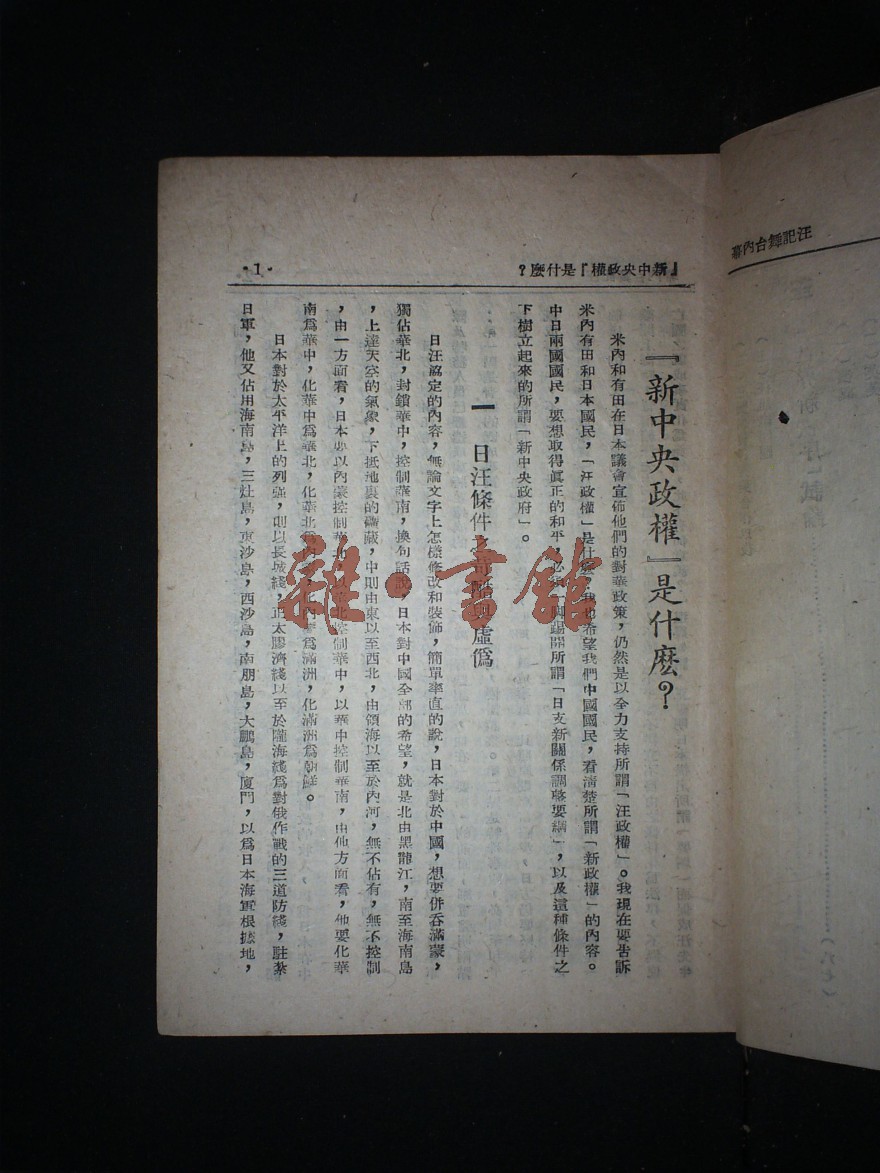 汪記舞台內幕
『新中央政權』是什麼？
·1·
『新中央政權』是什麼？
米內和有田在日本議會宣佈他們的對華政策，仍然是以全力支持所謂「汪政權」。我現在要告訴
米內有田和日本國民，「汪政權」是什麼，我也希望我們中國國民，看清楚所謂「新政權」的內容。
中日兩國國民，要想取得眞正的和平，必須一腳踢開所謂「日支新關係調整要綱」，以及這種條件之
下樹立起來的所謂「新中央政府」。
一　日汪條件之苛酷與虛僞
日汪協定的內容，無論文字上怎樣修改和裝飾，簡單率直的說，日本對於中國，想要併吞滿蒙，
獨佔華北，封鎖華中，控制華南，換句話說，日本對中國全部的希望，就是北由黑龍江，南至海南島
，上達天空的氣象，下抵地裏的礦藏，中則由東以至西北，由領海以至於內河，無不佔有，無不控制
，由一方面看，日本必以內蒙控制華北，以華北控制華中，以華中控制華南，由他方面看，他要化華
南爲華中，化華中爲華北，化華北爲內蒙，化內蒙爲滿洲，化滿洲爲朝鮮。
日本對於太平洋上的列强，則以長城綫，正太膠濟綫以至於隴海綫爲對俄作戰的三道防綫，駐紮
日軍，他又佔用海南島，三灶島，東沙島，西沙島，南朋島，大鵬島，廈門，以爲日本海軍根據地，
雜·書館
（八七）